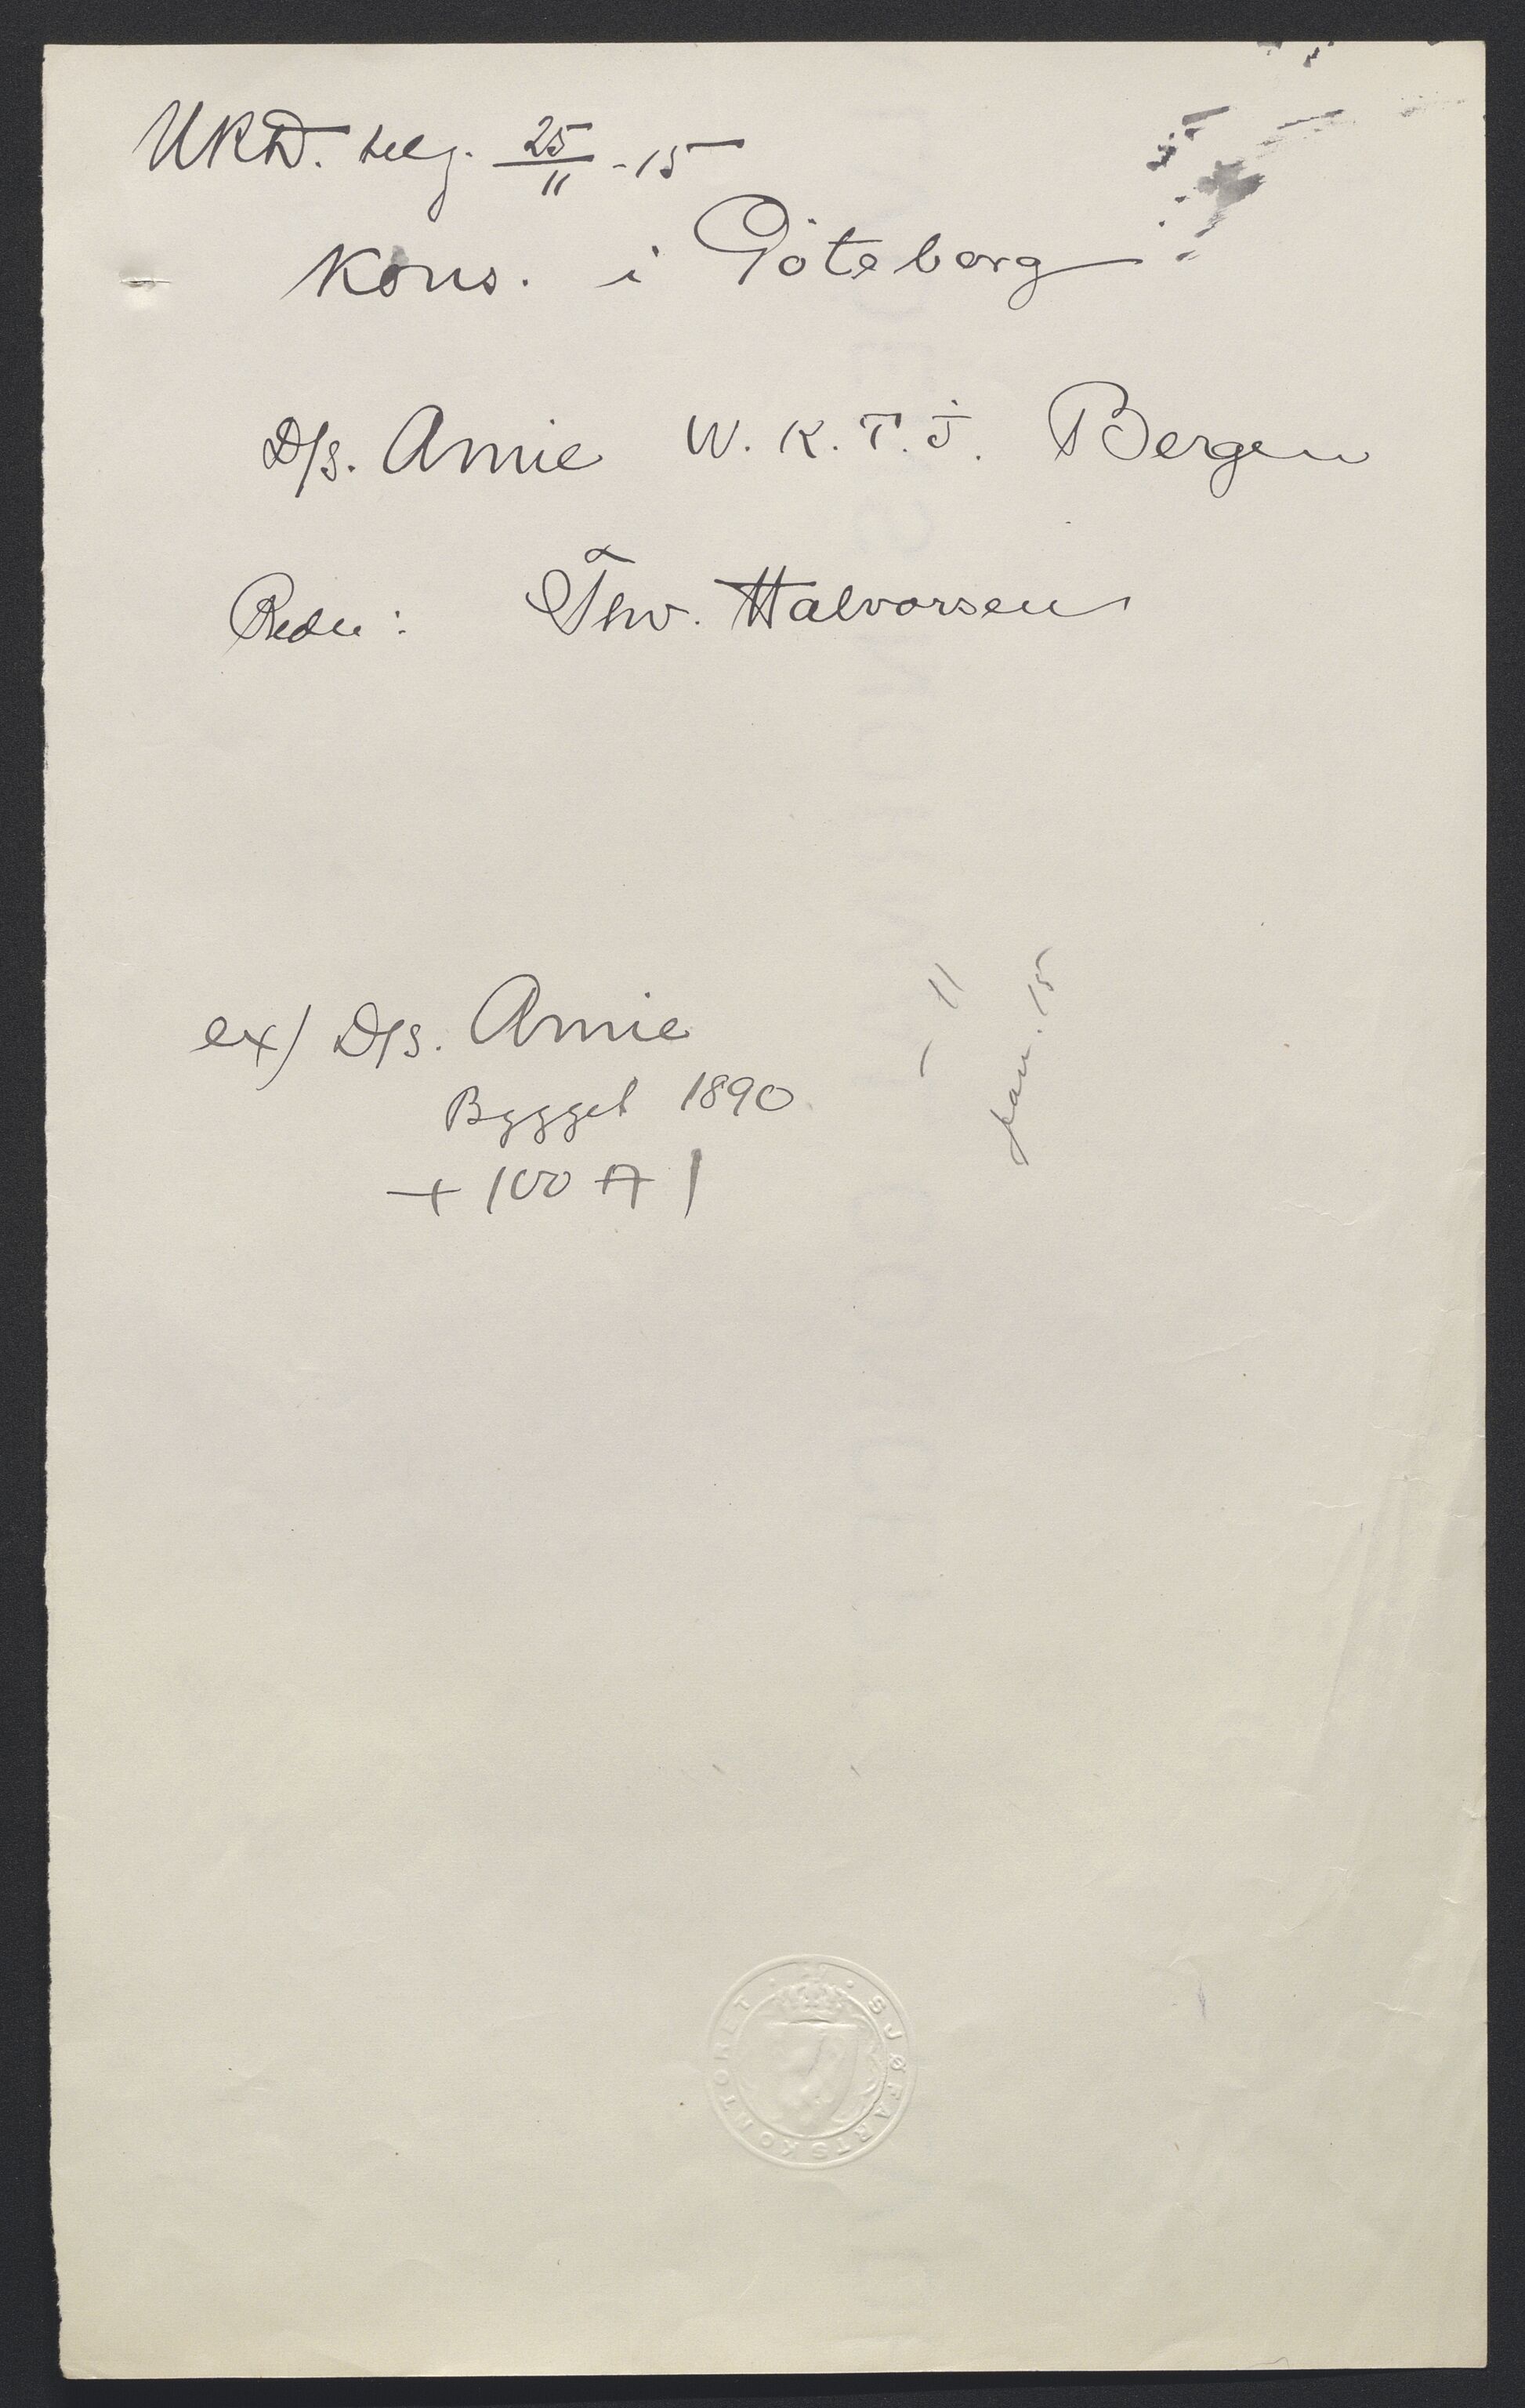 UKD. telg. 25/11 - 15
Kons. i Göteborg
D/s. Amie W. K. T. J. Bergen
Reder: Thv. Halvorsen
ex) D/s. Amie
Bygget 1890
+ 100 A 1
- 11
Jan. 15
SJØFARTSKONTORET